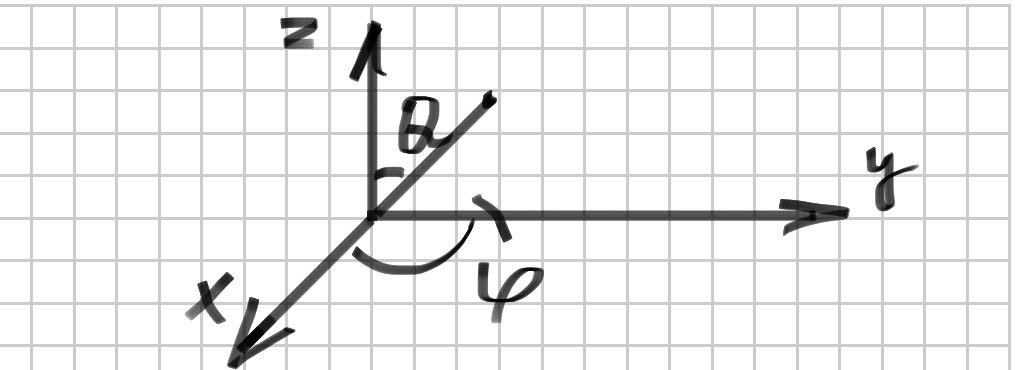 z
θ
y
x
φ